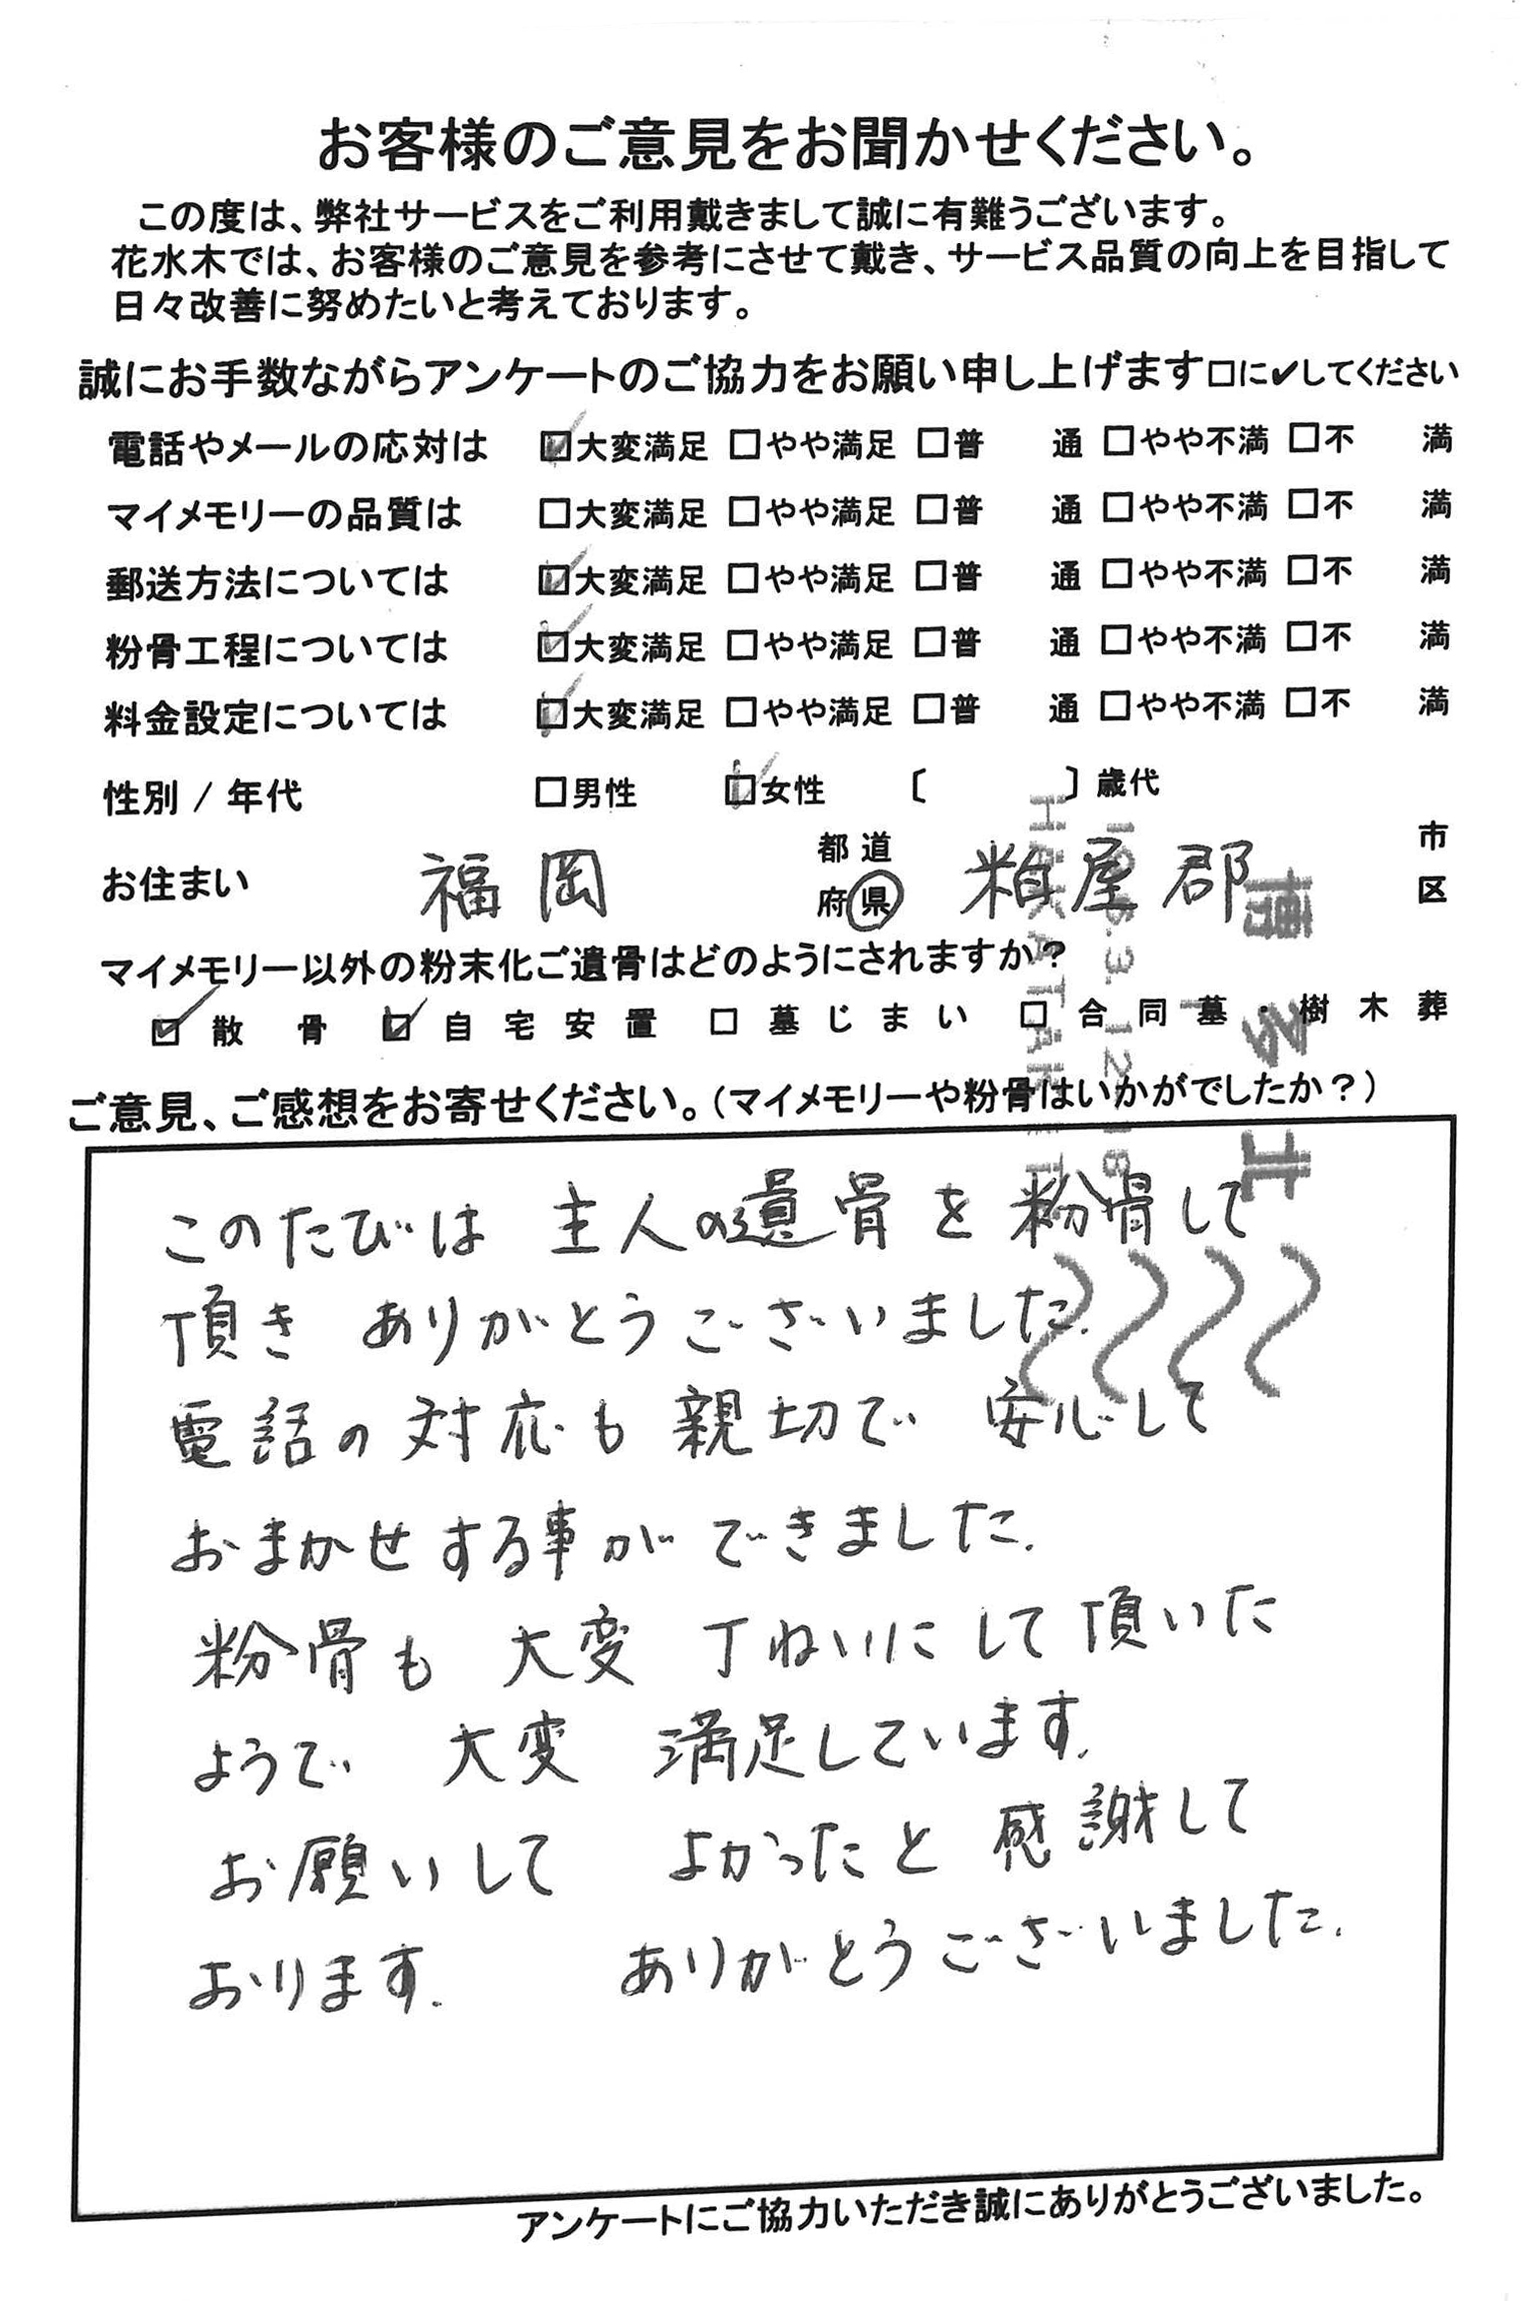 お客様のご意見をお聞かせください。
この度は、弊社サービスをご利用戴きまして誠に有難うございます。
花水木では、お客様のご意見を参考にさせて戴き、サービス品質の向上を目指して
日々改善に努めたいと考えております。
誠にお手数ながらアンケートのご協力をお願い申し上げます□に✔してください
電話やメールの応対は ☑大変満足 □やや満足 □普通 □やや不満 □不満
マイメモリーの品質は □大変満足 □やや満足 □普通 □やや不満 □不満
郵送方法については ☑大変満足 □やや満足 □普通 □やや不満 □不満
粉骨工程については ☑大変満足 □やや満足 □普通 □やや不満 □不満
料金設定については ☑大変満足 □やや満足 □普通 □やや不満 □不満
性別 / 年代 □男性 ☑女性 〔 〕歳代
お住まい 福岡 都道府県 粕屋郡 市区
マイメモリー以外の粉末化ご遺骨はどのようにされますか?
☑散骨 ☑自宅安置 □墓じまい □合同墓・樹木葬
ご意見、ご感想をお寄せください。(マイメモリーや粉骨はいかがでしたか?)
このたびは 主人の遺骨を粉骨して
頂き ありがとうございました.
電話の対応も親切で 安心して
おまかせする事ができました.
粉骨も 大変 丁ねいにして頂いた
ようで 大変 満足しています.
お願いして よかったと感謝して
おります. ありがとうございました.
アンケートにご協力いただき誠にありがとうございました。